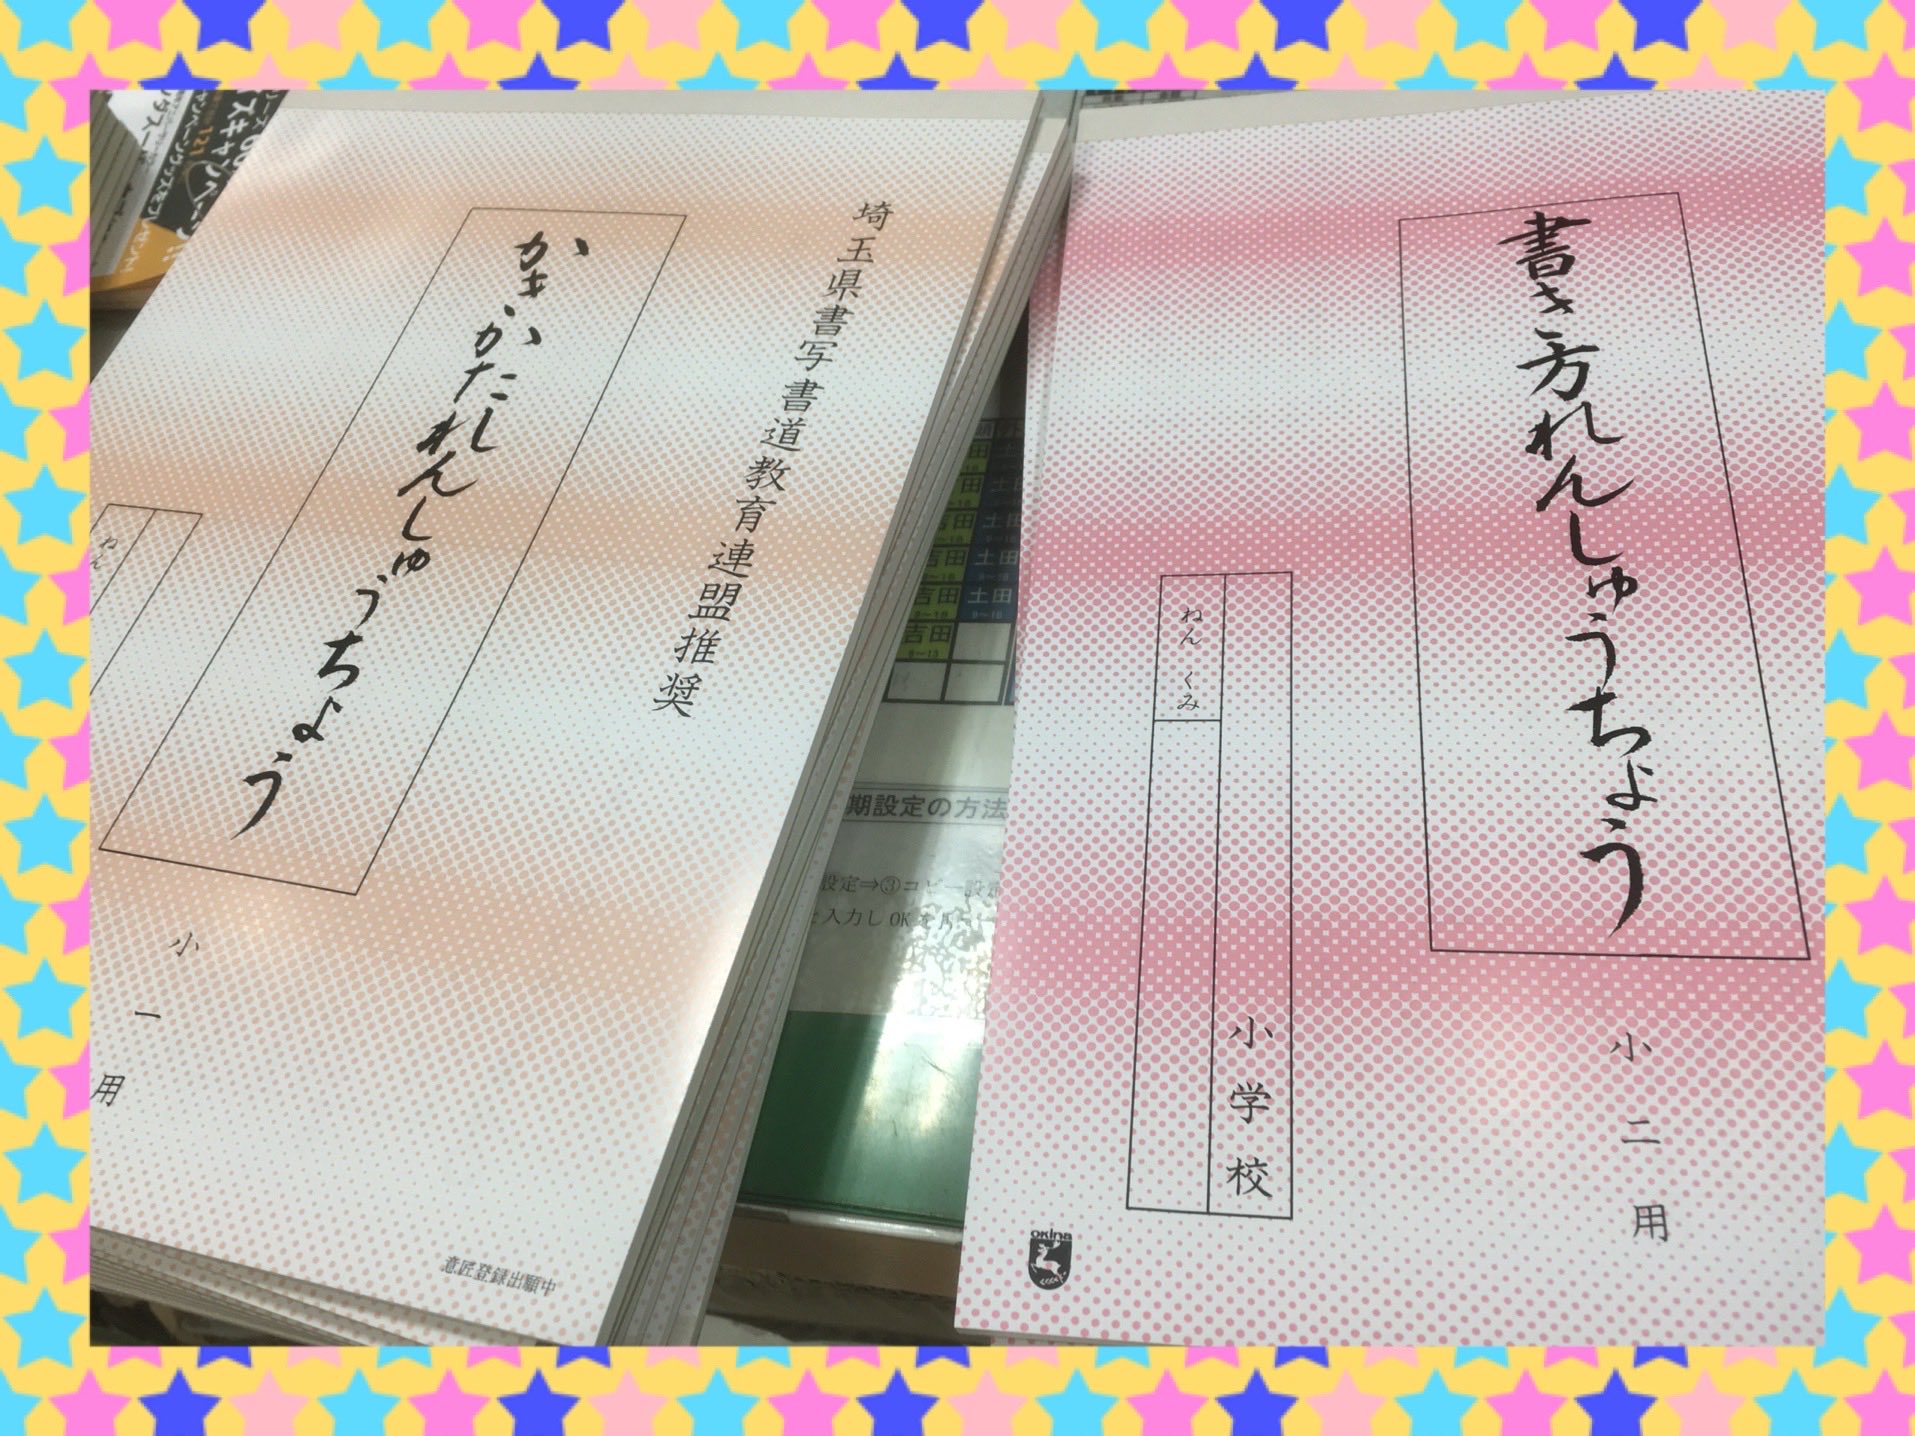 埼玉県書写書道教育連盟推奨
かきかたれんしゅうちょう
小一用
ねん
意匠登録出願中
書き方れんしゅうちょう
小二用
小学校
ねん くみ
okina
吉田 土田
吉田 土田
吉田 土田
吉田
期設定の方法
設定⇒③コピー設定
入力しOKを
スキャン
121